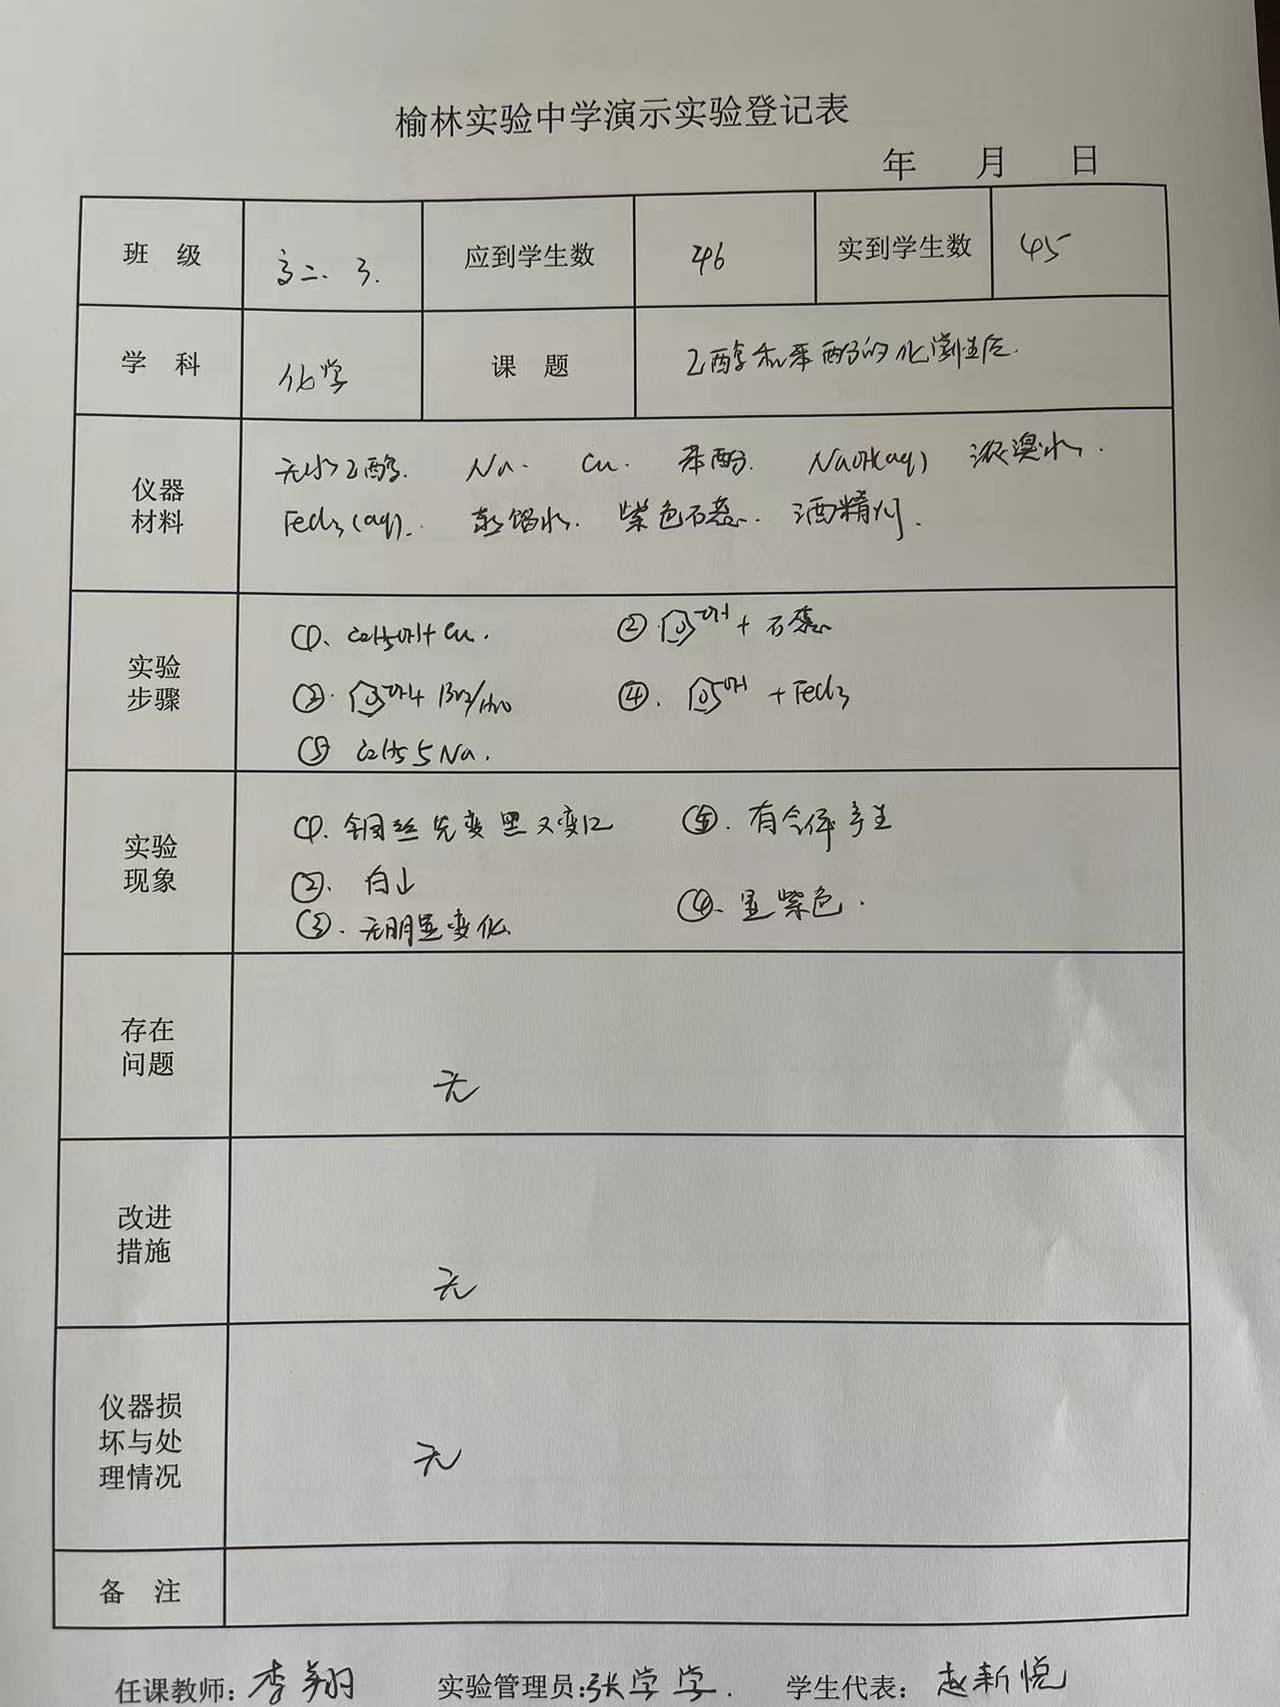 榆林实验中学演示实验登记表
年 月 日
班 级 高二.3. 应到学生数 46 实到学生数 45
学 科 化学 课 题 乙醇和苯酚的化学性质.
仪器
材料
无水乙醇. Na. Cu. 苯酚. NaOH(aq) 浓溴水.
FeCl3(aq). 蒸馏水. 紫色石蕊. 酒精灯.
实验
步骤
①、C2H5OH+Cu. ② OH + 石蕊
③. OH+ Br2/H2O ④. OH + FeCl3
⑤ C2H5 与 Na.
实验
现象
①. 铜丝先变黑又变红 ⑤. 有气体产生
②. 白↓
③. 无明显变化 ④. 显紫色.
存在
问题
无
改进
措施
无
仪器损
坏与处
理情况
无
备 注
任课教师: 李翔 实验管理员: 张学学. 学生代表: 赵新悦